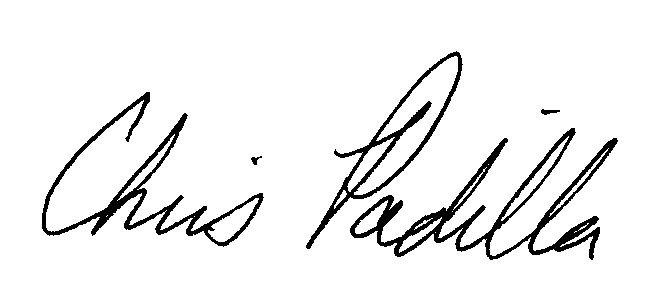 Chris Padilla